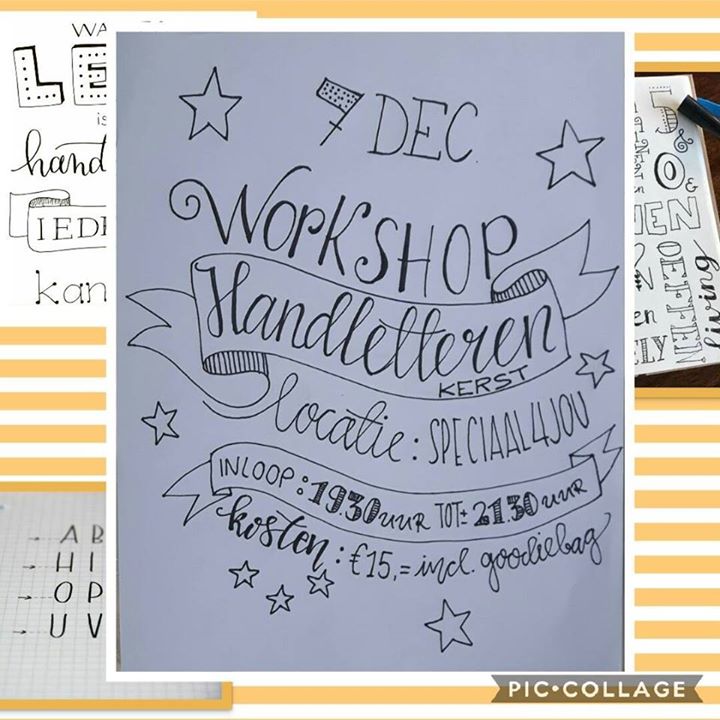 7 DEC
WORKSHOP
Handletteren
KERST
locatie: SPECIAAL4JOU
INLOOP: 19.30 uur TOT ± 21.30 uur
kosten: €15,= incl. goodiebag
WA
LE
is
hand
IED
kan
A B
H I
O P
U V
L
&
O
&
OEFFEN
living
PIC•COLLAGE